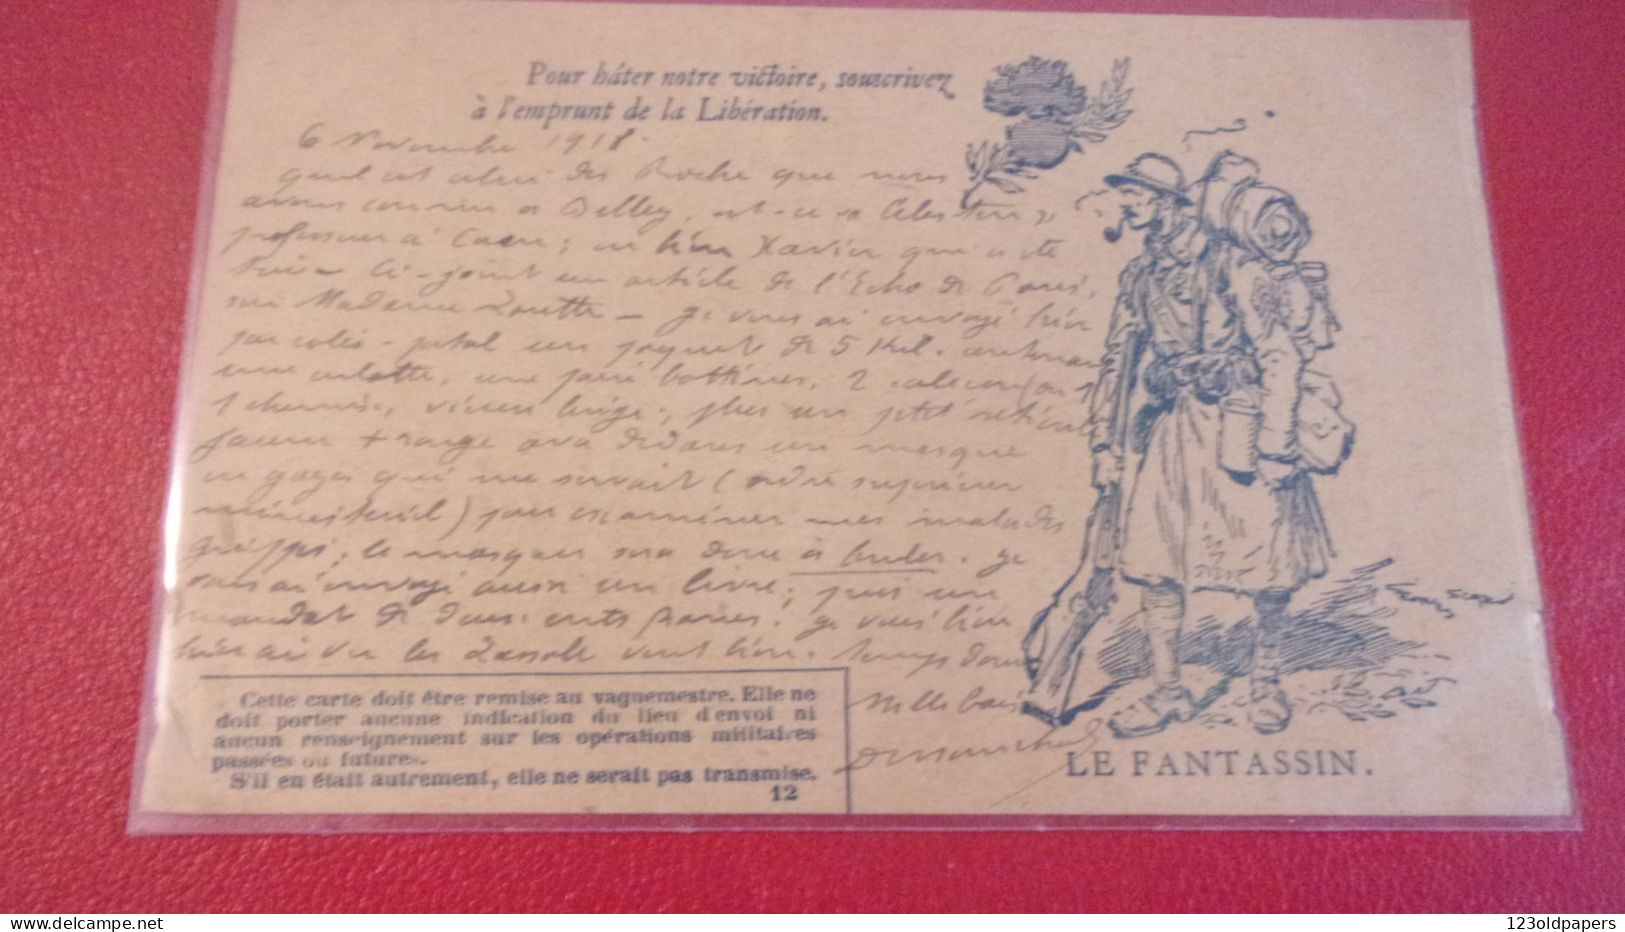 Pour hâter notre victoire, souscrivez
à l'emprunt de la Libération.
6 Novembre 1918.
quel est celui des Roche que nous
avons connu à Belley, est-ce
professeur à Caen; ou bien Xavier qui
ci-joint un article de l'Echo de Paris,
sur Madame - je vous ai envoyé hier
par colis-postal un paquet de 5 kil.
une culotte, une paire bottines, 2 caleçons
1 chemise, vieux linge, plus un petit
jaune + rouge dedans un masque
en gaze qui me servait (ordre supérieur
ministériel) pour examiner mes malades
grippés; le masque sera donc à bruler. Je
vous ai envoyé aussi un livre; puis un
mandat de deux cents francs. Je vous
ai vu les vont bien. Temps doux
Mille bais
LE FANTASSIN.
Cette carte doit être remise au vaguemestre. Elle ne
doit porter aucune indication du lieu d'envoi ni
aucun renseignement sur les opérations militaires
passées ou futures.
S'il en était autrement, elle ne serait pas transmise.
12
123oldpapers